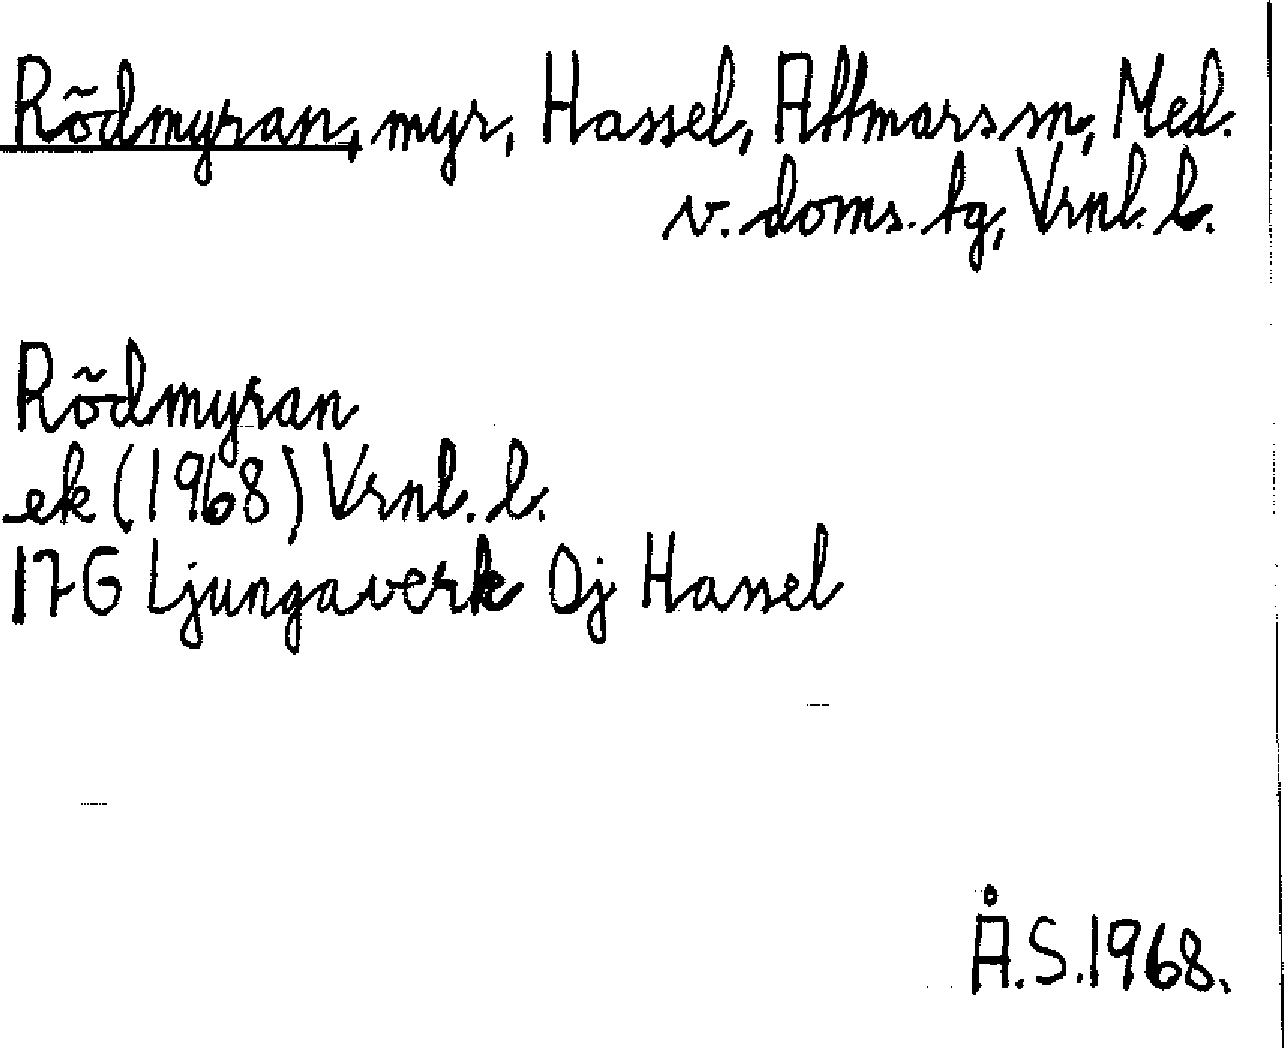 Rödmyran, myr, Hassel, Attmars sn, Med.
v. doms. tg, Vrnl. l.
Rödmyran
ek (1968) Vrnl. l.
17G Ljungaverk 0j Hassel
Å.S.1968.